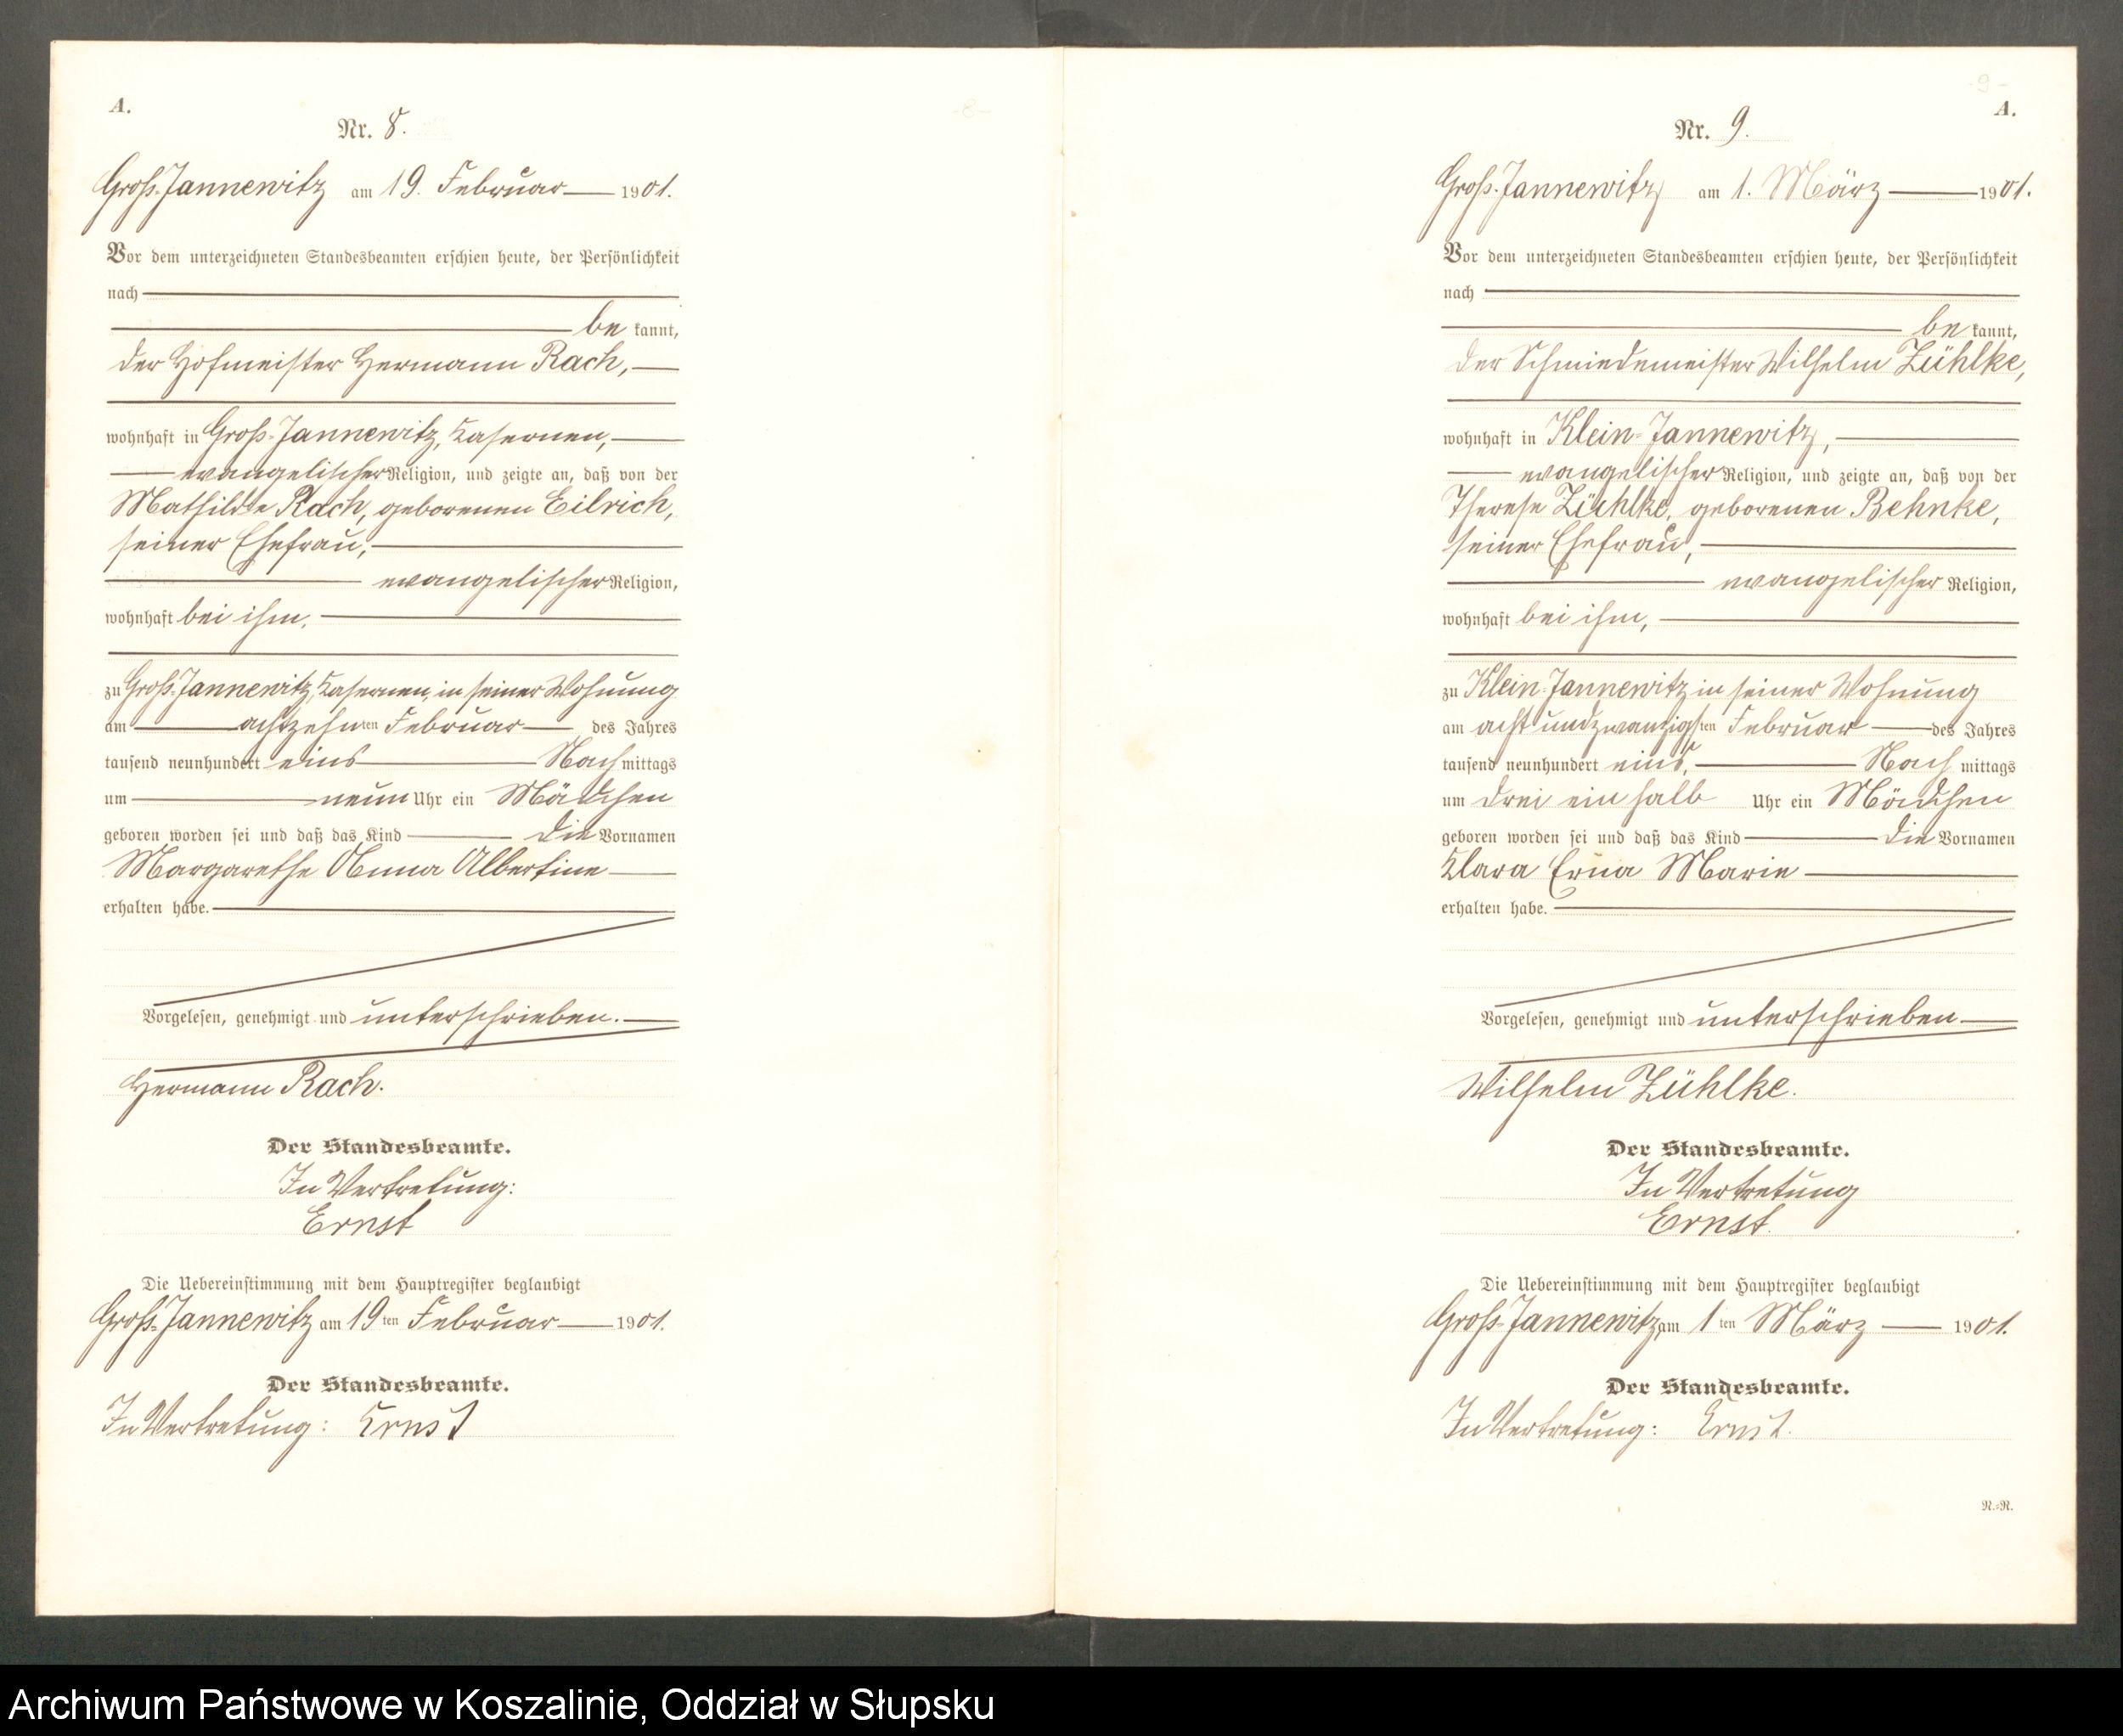 A.
Nr. 8.
Groß-Jannewitz am 19. Februar 1901.
Vor dem unterzeichneten Standesbeamten erschien heute, der Persönlichkeit
nach
be kannt,
der Hofmeister Hermann Rach,
wohnhaft in Groß-Jannewitz, Kasernen,
evangelischer Religion, und zeigte an, daß von der
Mathilde Rach, geborenen Eilrich,
seiner Ehefrau,
evangelischer Religion,
wohnhaft bei ihm,
zu Groß-Jannewitz, Kasernen, in seiner Wohnung
am achtzehnten Februar des Jahres
tausend neunhundert eins Nachmittags
um neun Uhr ein Mädchen
geboren worden sei und daß das Kind die Vornamen
Margarethe Anna Albertine
erhalten habe.
Vorgelesen, genehmigt und unterschrieben.
Hermann Rach.
Der Standesbeamte.
In Vertretung:
Ernst
Die Uebereinstimmung mit dem Hauptregister beglaubigt
Groß-Jannewitz am 19ten Februar 1901.
Der Standesbeamte.
In Vertretung: Ernst
-8-
-9-
A.
Nr. 9.
Groß-Jannewitz am 1. März 1901.
Vor dem unterzeichneten Standesbeamten erschien heute, der Persönlichkeit
nach
be kannt,
der Schmiedemeister Wilhelm Zühlke,
wohnhaft in Klein-Jannewitz,
evangelischer Religion, und zeigte an, daß von der
Therese Zühlke, geborenen Behnke,
seiner Ehefrau,
evangelischer Religion,
wohnhaft bei ihm,
zu Klein-Jannewitz in seiner Wohnung
am acht und zwanzigsten Februar des Jahres
tausend neunhundert eins, Nach mittags
um drei ein halb Uhr ein Mädchen
geboren worden sei und daß das Kind die Vornamen
Klara Erna Marie
erhalten habe.
Vorgelesen, genehmigt und unterschrieben
Wilhelm Zühlke.
Der Standesbeamte.
In Vertretung
Ernst.
Die Uebereinstimmung mit dem Hauptregister beglaubigt
Groß-Jannewitz am 1ten März 1901.
Der Standesbeamte.
In Vertretung: Ernst.
N.-N.
Archiwum Państwowe w Koszalinie, Oddział w Słupsku